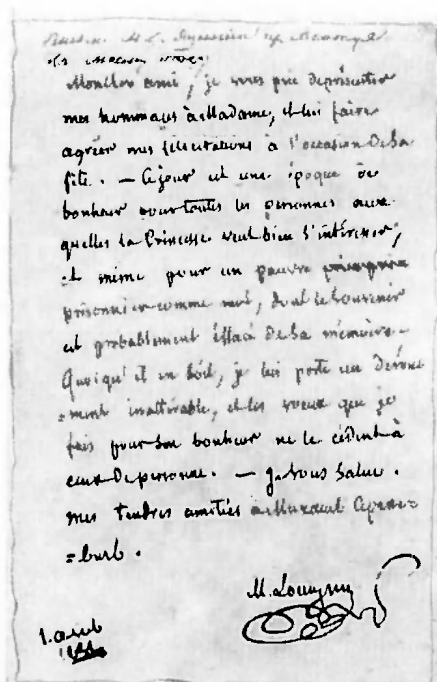 Mon cher ami, je vous prie de présenter
mes hommages à Madame, et lui faire
agréer mes félicitations à l'occasion de sa
fête. — Ce jour est une époque de
bonheur pour toutes les personnes aux-
quelles la Princesse veut bien s'intéresser,
et même pour un pauvre
prisonnier comme moi, dont le souvenir
est probablement effacé de sa mémoire.
Quoiqu'il en soit, je lui porte un dévoue
=ment inaltérable, et les vœux que je
fais pour son bonheur ne le cèdent à
ceux de personne. — Je vous salue.
mes tendres amitiés à
=burb.
1. avril